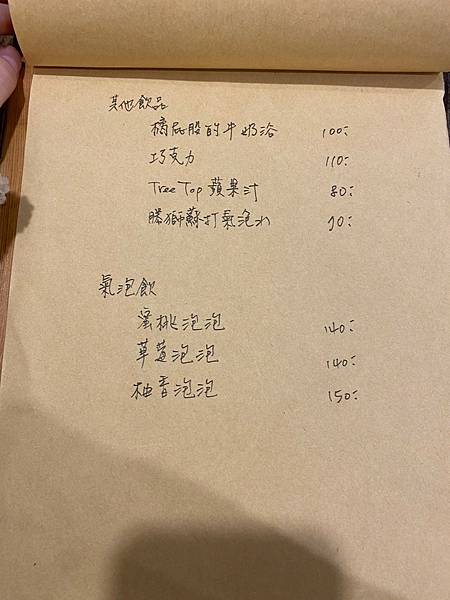 其他飲品
橘屁股的牛奶浴 100.-
巧克力 110.-
Tree Top 蘋果汁 80.-
勝獅蘇打氣泡水 90.-
氣泡飲
蜜桃泡泡 140.-
草莓泡泡 140.-
柚香泡泡 150.-